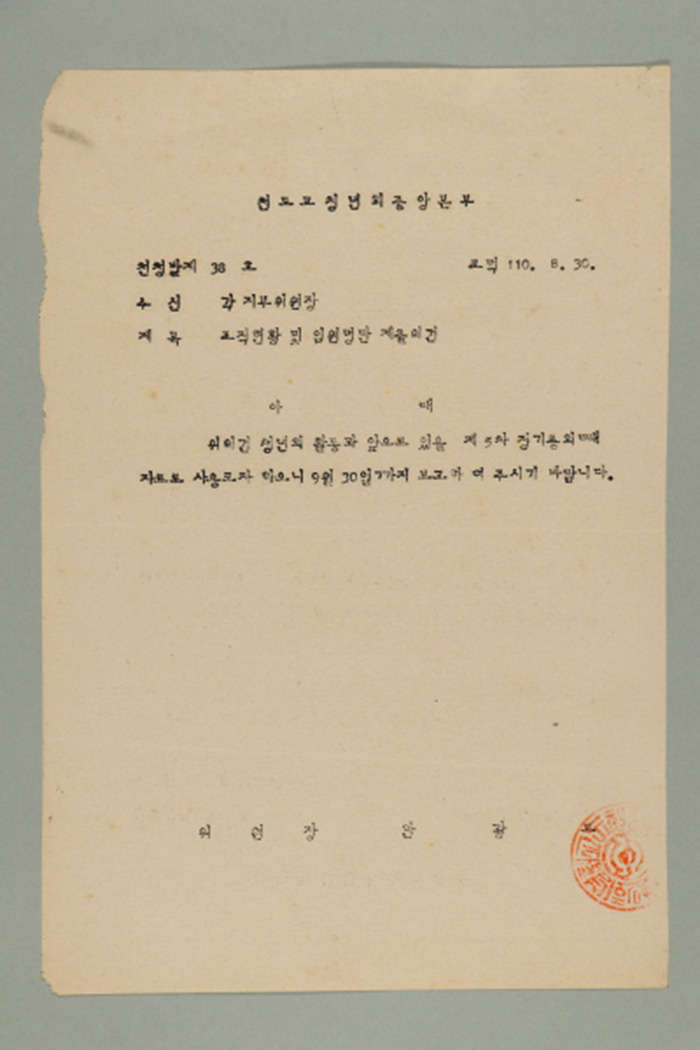 천도교청년회중앙본부
천청발제 38 호 포덕 110. 8. 30.
수 신 각 지부위원장
제 목 조직현황 및 임원명단 제출의건
아 래
위의건 청년회 활동과 앞으로 있을 제 5차 정기총회때
자료로 사용코자 하오니 9월 30일까지 보고하 여 주시기 바랍니다.
위 원 장 광